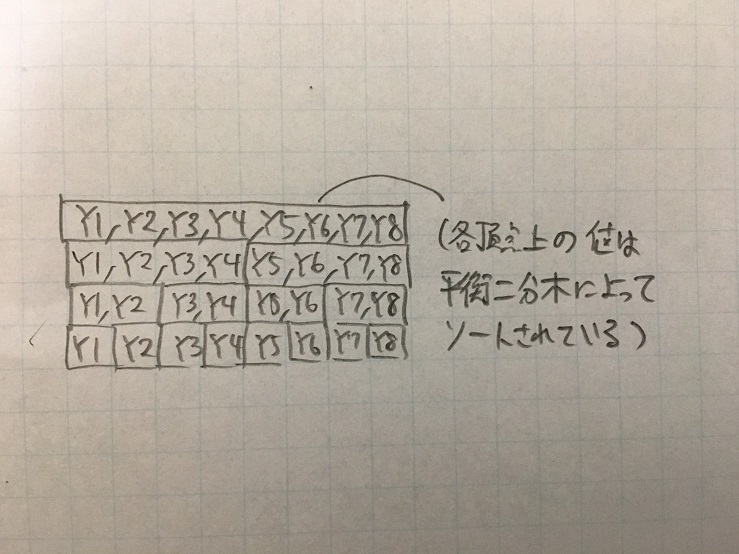 Y1,Y2,Y3,Y4,Y5,Y6,Y7,Y8
Y1,Y2,Y3,Y4 Y5,Y6,Y7,Y8
Y1,Y2 Y3,Y4 Y5,Y6 Y7,Y8
Y1 Y2 Y3 Y4 Y5 Y6 Y7 Y8
(各頂点上の値は
平衡二分木によって
ソートされている)